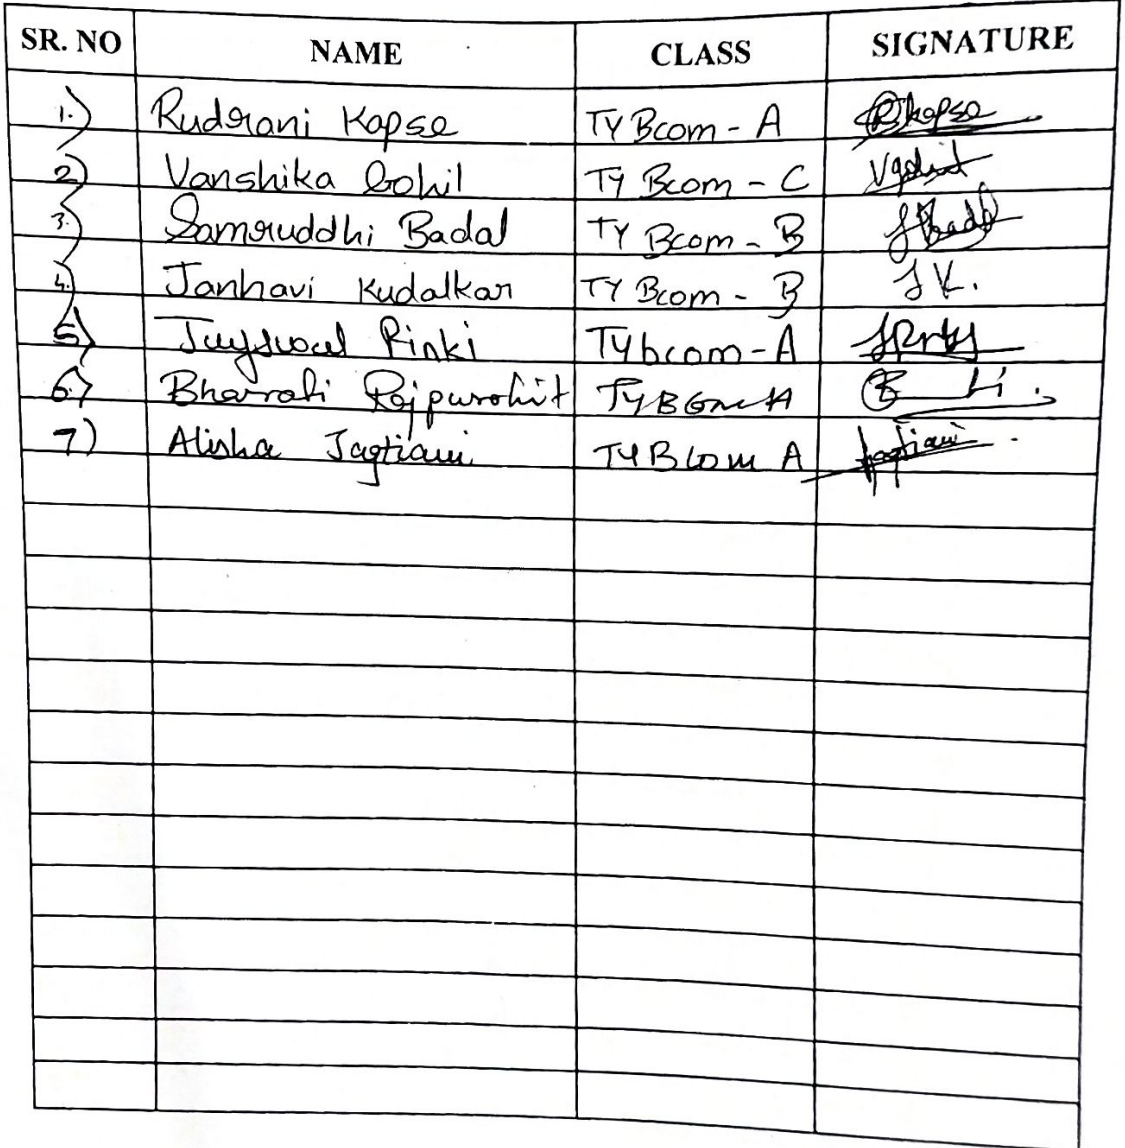 SR. NO NAME CLASS SIGNATURE
1.) Rudrani Kapse TYBcom - A Rkapse
2) Vanshika Gohil TY Bcom - C Vgohil
3.) Samruddhi Badal TY Bcom - B SBadal
4.) Janhavi Kudalkar TY Bcom - B JK.
5) Jayswal Pinki TYbcom - A
6.) Bharati Rajpurohit TYBCom A
7) Alisha Jagtiani TYBCom A Jagtiani